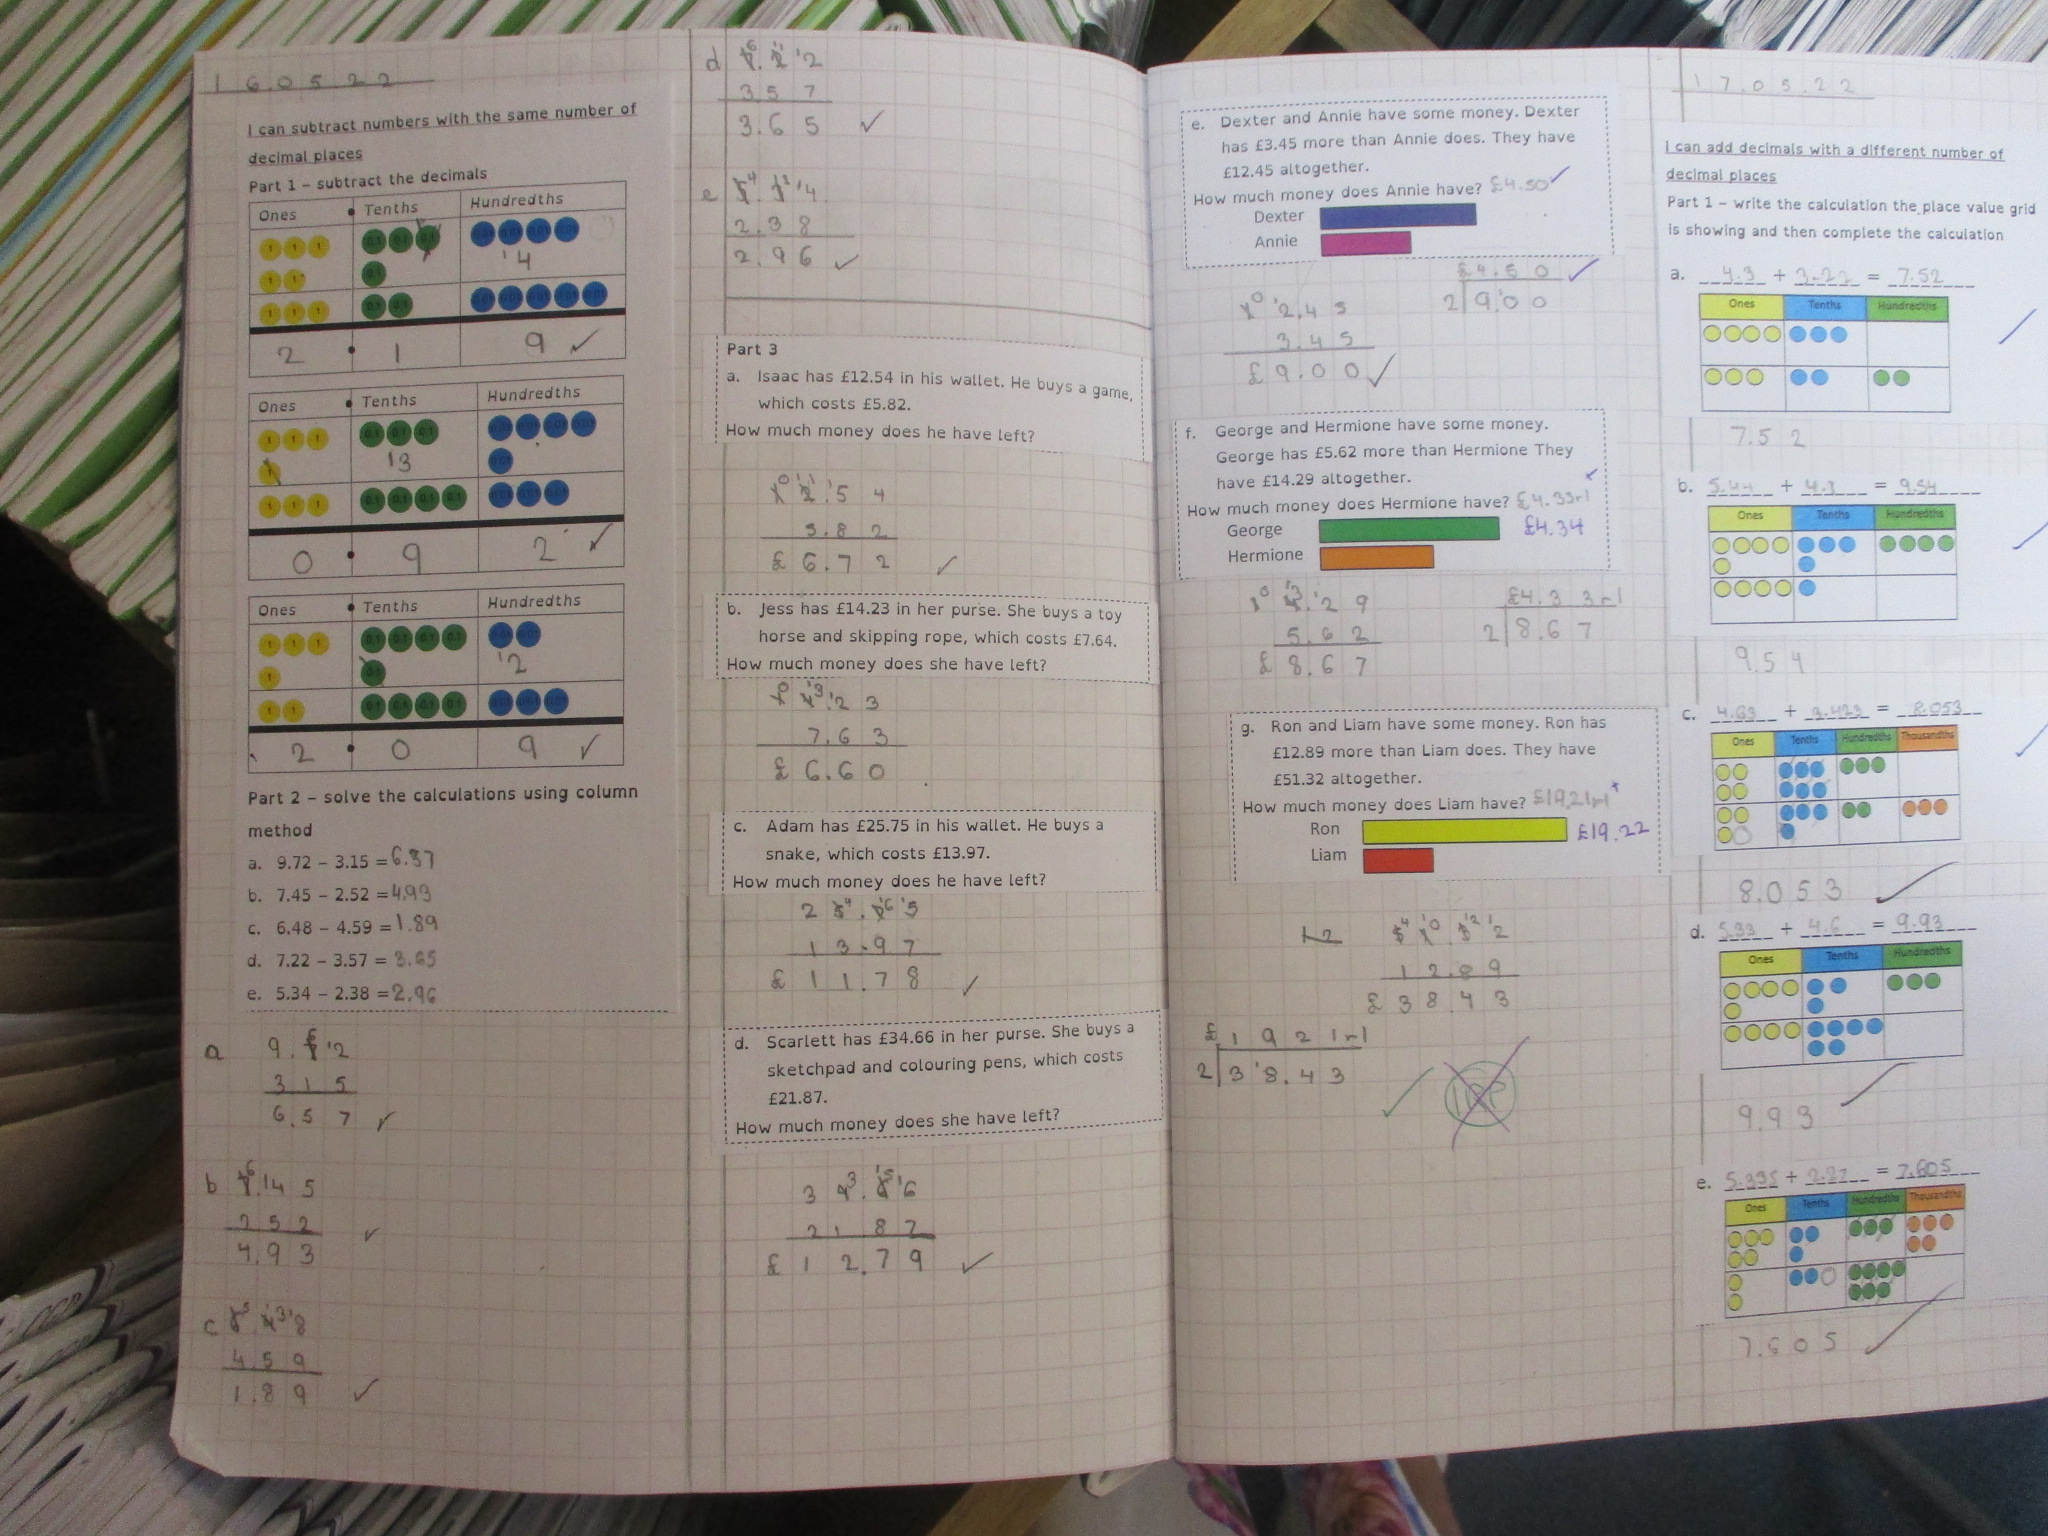 16.05.22
I can subtract numbers with the same number of
decimal places
Part 1 – subtract the decimals
Ones • Tenths Hundredths
'4
2 • 1 9 ✓
Ones • Tenths Hundredths
'3
0 • 9 2 ✓
Ones • Tenths Hundredths
'2
2 • 0 9 ✓
Part 2 – solve the calculations using column
method
a. 9.72 – 3.15 = 6.57
b. 7.45 – 2.52 = 4.93
c. 6.48 – 4.59 = 1.89
d. 7.22 – 3.57 = 3.65
e. 5.34 – 2.38 = 2.96
a 9.7 6 '2
3 1 5
6.5 7 ✓
b 7 6.'4 5
2 5 2
4.9 3 ✓
c 6 5.'4 3'8
4.5 9
1.8 9 ✓
d 7 6.'2 1'2
3 5 7
3.6 5 ✓
e 5 4.'3 2'4
2.3 8
2.9 6 ✓
Part 3
a. Isaac has £12.54 in his wallet. He buys a game,
which costs £5.82.
How much money does he have left?
1 0 '2 1.'5 4
5.8 2
£ 6.7 2 ✓
b. Jess has £14.23 in her purse. She buys a toy
horse and skipping rope, which costs £7.64.
How much money does she have left?
1 0 '4 3.'2 3
7.6 3
£ 6.6 0
c. Adam has £25.75 in his wallet. He buys a
snake, which costs £13.97.
How much money does he have left?
2 5 4.'7 6'5
1 3.9 7
£ 1 1.7 8 ✓
d. Scarlett has £34.66 in her purse. She buys a
sketchpad and colouring pens, which costs
£21.87.
How much money does she have left?
3 4 3.'6 5'6
2 1 8 7
£ 1 2.7 9 ✓
e. Dexter and Annie have some money. Dexter
has £3.45 more than Annie does. They have
£12.45 altogether.
How much money does Annie have? £4.50 ✓
Dexter
Annie
1 0 '2.4 5
3.4 5
£ 9.0 0 ✓
£4.5 0 ✓
2 9.'0 0
f. George and Hermione have some money.
George has £5.62 more than Hermione They
have £14.29 altogether.
How much money does Hermione have? £4.33r1
George £4.34
Hermione
1 0 '4 3.'2 9
5.6 2
£ 8.6 7
£4.3 3r1
2 8.6 7
g. Ron and Liam have some money. Ron has
£12.89 more than Liam does. They have
£51.32 altogether.
How much money does Liam have? £19.21r1
Ron £19.22
Liam
12
5 4 '1 0.'3 2'2
1 2.8 9
£ 3 8.4 3
£ 1 9 2 1r1
2 3'8.4 3
✓
17.05.22
I can add decimals with a different number of
decimal places
Part 1 – write the calculation the place value grid
is showing and then complete the calculation
a. 4.3 + 3.22 = 7.52
Ones Tenths Hundredths
7.5 2
b. 5.44 + 4.1 = 9.54
Ones Tenths Hundredths
9.5 4
c. 4.63 + 3.423 = 8.053
Ones Tenths Hundredths Thousandths
8.0 5 3 ✓
d. 5.33 + 4.6 = 9.93
Ones Tenths Hundredths
9.9 3
e. 5.335 + 2.27 = 7.605
Ones Tenths Hundredths Thousandths
7.6 0 5 ✓